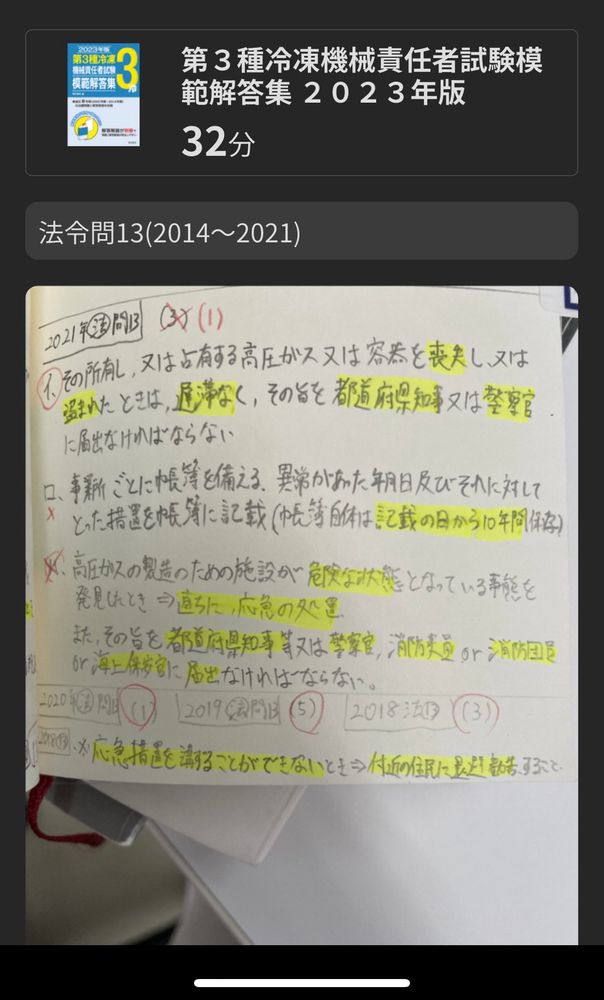 2023年版
第3種冷凍
機械責任者試験
模範解答集
3
第３種冷凍機械責任者試験模
範解答集 ２０２３年版
32分
法令問13(2014〜2021)
2021年法問13 (3) (1)
イ、その所有し、又は占有する高圧ガス又は容器を喪失し、又は
盗まれたときは、遅滞なく、その旨を都道府県知事又は警察官
に届出なければならない
ロ、事業所ごとに帳簿を備える、異常があった年月日及びそれに対して
とった措置を帳簿に記載(帳簿自体は記載の日から10年間保存)
高圧ガスの製造のための施設が危険な状態となっている事態を
発見したとき⇒直ちに、応急の処置
また、その旨を都道府県知事等又は警察官、消防吏員or消防団員
or海上保安官に届出なければならない。
2020年法問13 (1) 2019法問13 (5) 2018法13 (3)
2018法13 ※応急措置を講ずることができないとき⇒付近の住民に退避勧告すること